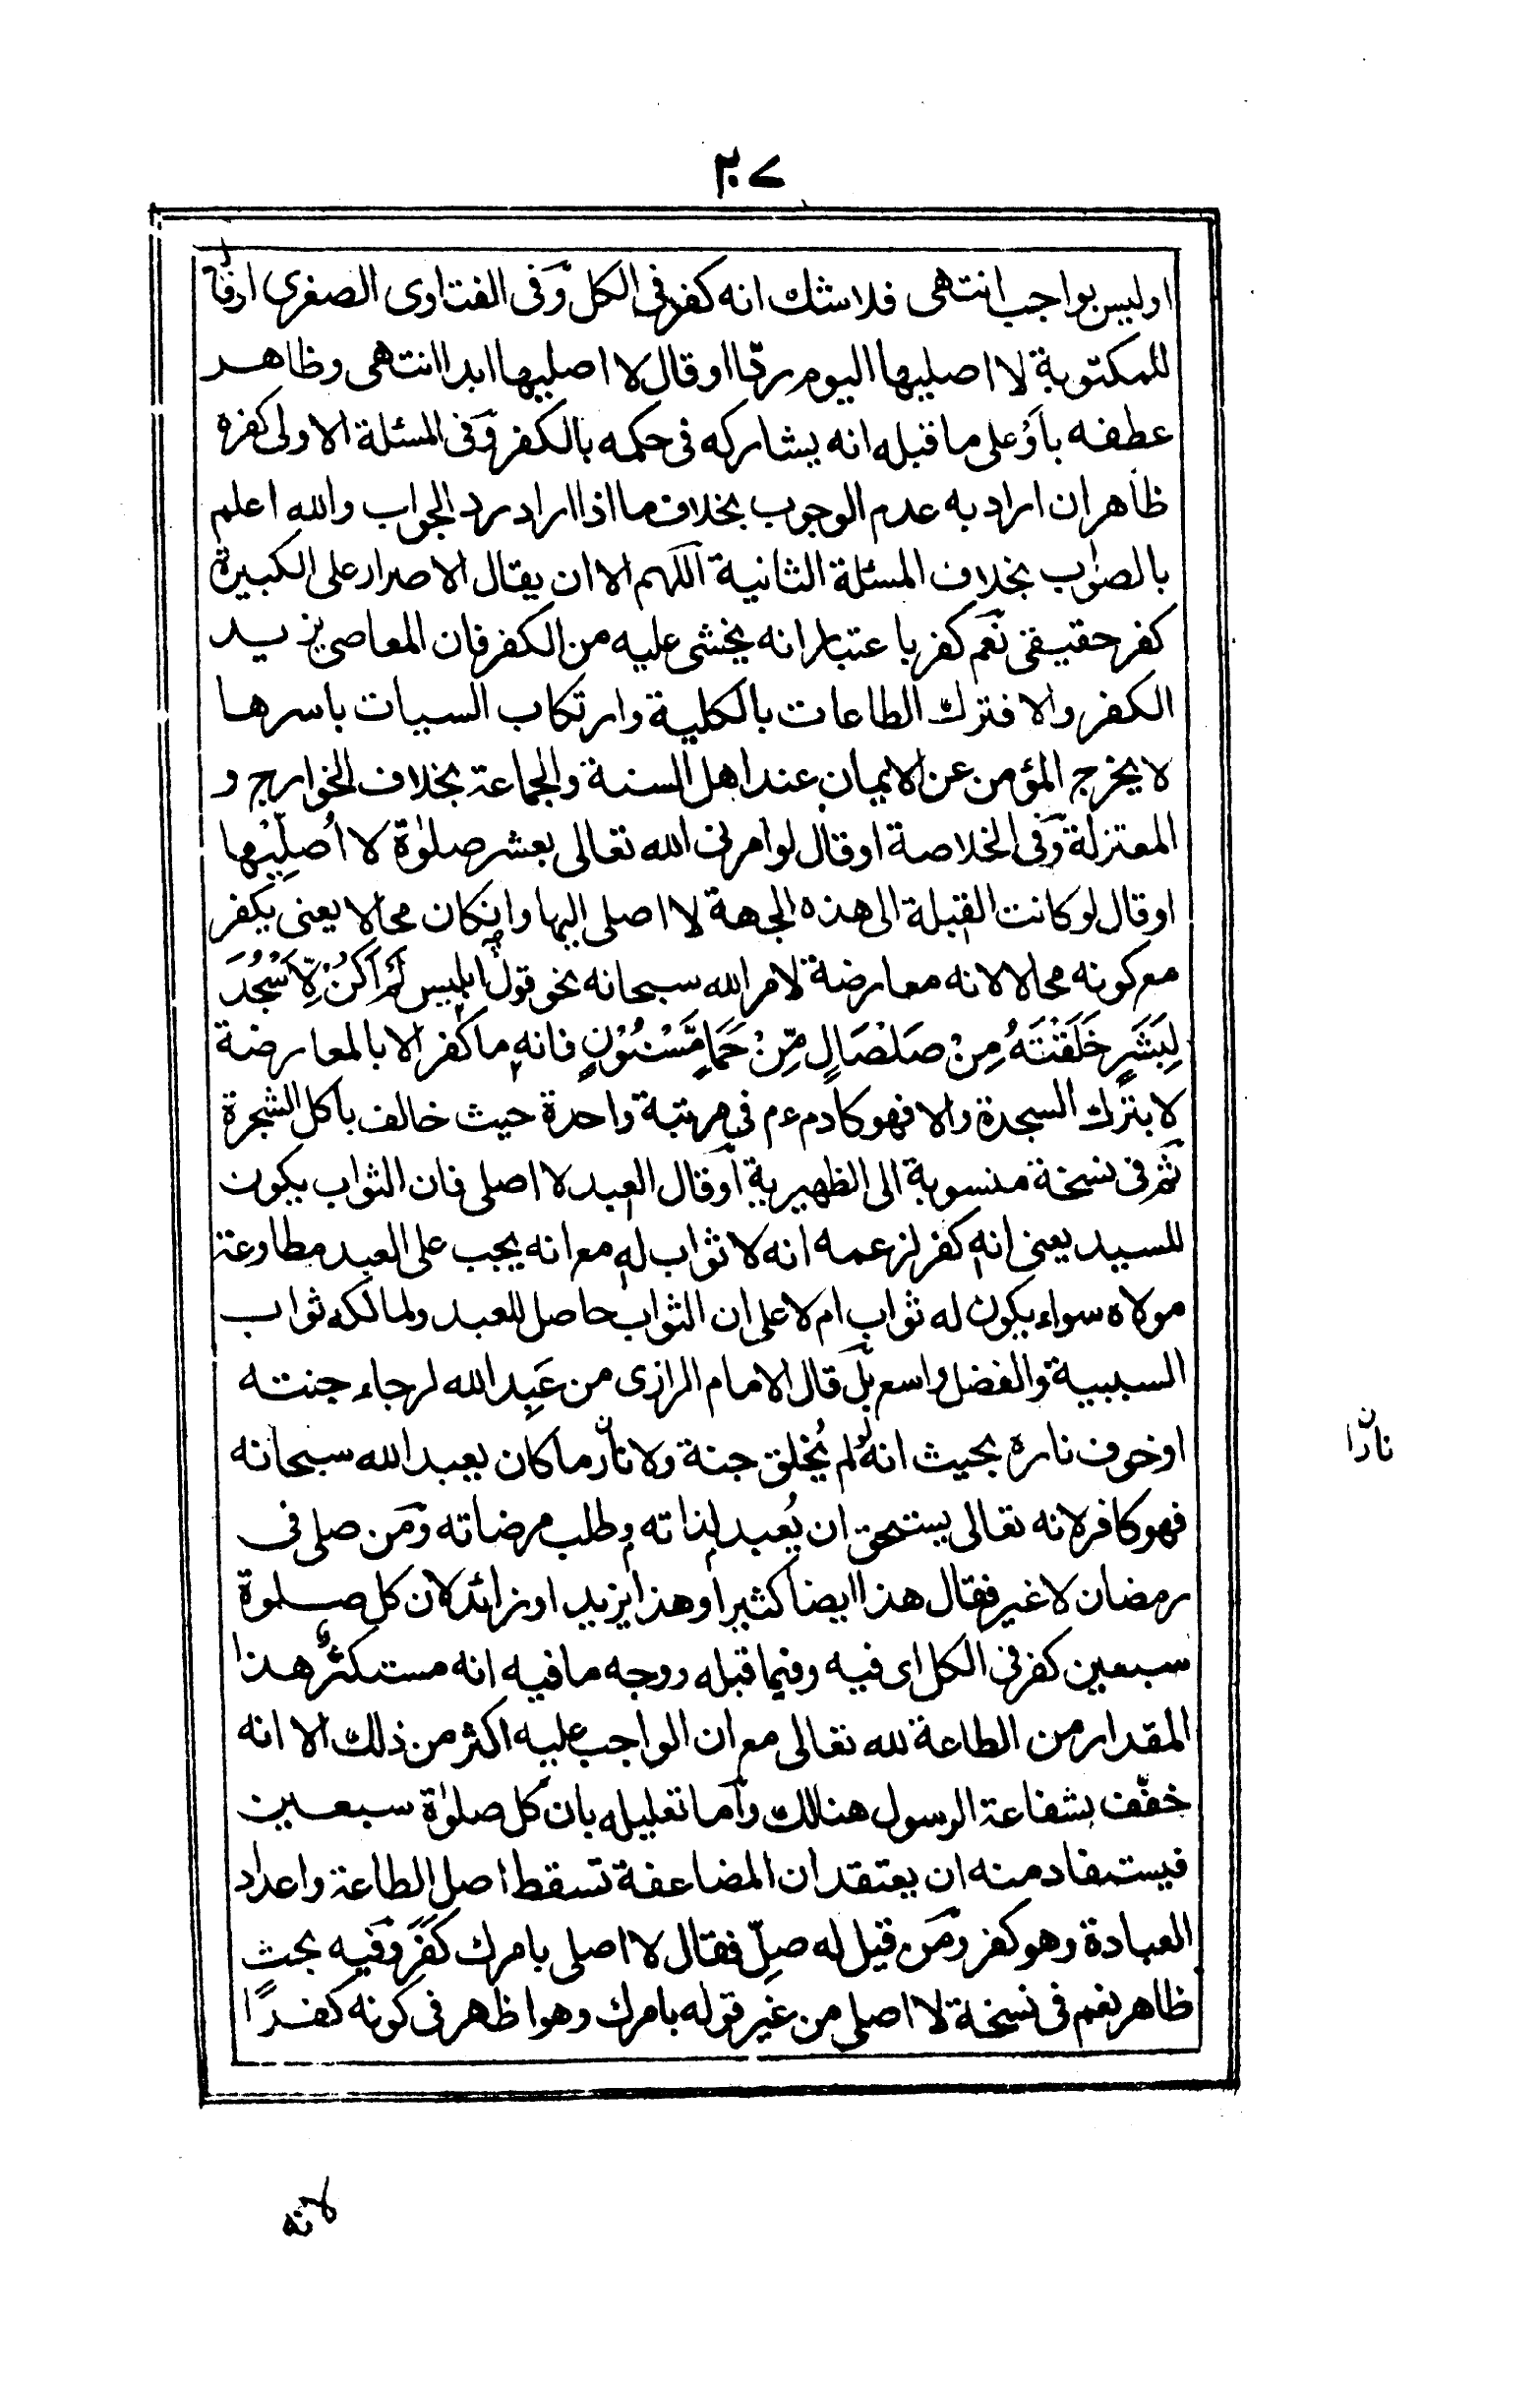 ٢٠٧
او ليس بواجب انتهى فلا شك انه كفر فى الكل وفى الفتاوى الصغرى او قال
للمكتوبة لا اصليها اليوم ردّا او قال لا اصليها ابدا انتهى وظاهر
عطفه باَوْ على ما قبله انه يشاركه فى حكمه بالكفر وفى المسئلة الاولى كفره
ظاهر ان اراد به عدم الوجوب بخلاف ما اذا اراد رد الجواب والله اعلم
بالصواب بخلاف المسئلة الثانية اللهم الا ان يقال الاصرار على الكبيرة
كفر حقيقى نعم كفر باعتبار انه يخشى عليه من الكفر فان المعاصى يزيد
الكفر والا فترك الطاعات بالكلية وارتكاب السيات باسرها
لا يخرج المؤمن عن الايمان عند اهل السنة والجماعة بخلاف الخوارج و
المعتزلة وفى الخلاصة او قال لو امرنى الله تعالى بعشر صلوٰة لا اُصلِّيْها
او قال لو كانت القبلة الى هذه الجهة لا اصلى اليها وانكان محالا يعنى يكفر
مع كونه محالا لانه معارضة لامر الله سبحانه نحو قول ابليس لَمْ اَكُنْ لِّاَسْجُدَ
لِبَشَرٍ خَلَقْتَهُ مِنْ صَلْصَالٍ مِّنْ حَمَاٍ مَّسْنُوْنٍ فانه ما كفر الا بالمعارضة
لا بترك السجدة والا فهو كادم ءم فى مرتبة واحدة حيث خالف باكل الشجرة
ثم فى نسخة منسوبة الى الظهيرية او قال العبد لا اصلى فان الثواب يكون
للسيد يعنى انه كفر لزعمه انه لا ثواب له مع انه يجب على العبد مطاوعة
مولاه سواء يكون له ثواب ام لا على ان الثواب حاصل للعبد ولمالكه ثواب
السببية والفضل واسع بل قال الامام الرازى من عَبِد الله لرجاء جنته
او خوف ناره بحيث انه لو لم يُخلق جنة ولا نار ما كان يعبد الله سبحانه
فهو كافر لانه تعالى يستحق ان يُعبد لذاته وطلب مرضاته ومن صلى فى
رمضان لا غير فقال هذا ايضا كثير او هذا يزيد او زائد لان كل صلوة
سبعين كفر فى الكل اى فيه وفيما قبله ووجه ما فيه انه مستكثر هذا
المقدار من الطاعة لله تعالى مع ان الواجب عليه اكثر من ذلك الا انه
خفّف بشفاعة الرسول هنالك واما تعليله بان كل صلوٰة سبعين
فيستفاد منه ان يعتقد ان المضاعفة تسقط اصل الطاعة واعداد
العبادة وهو كفر ومن قيل له صلِّ فقال لا اصلى بامرك كفر وفيه بحث
ظاهر نعم فى نسخة لا اصلى من غير قوله بامرك وهو اظهر فى كونه كفرًا
نارا ن
لانه